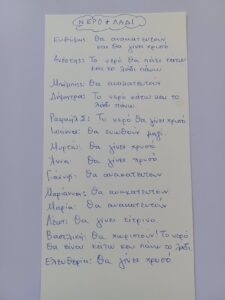 ΝΕΡΟ + ΛΑΔΙ
Ευθύμης: Θα ανακατευτούν
και θα γίνει χρυσό
το νερό θα πάει κάτω
και το λάδι πάνω
Μπάμπης: Θα ανακατευτούν
Δήμητρα: Το νερό κάτω και το
λάδι πάνω
Ραφαήλ Σ: Το νερό θα γίνει χρυσό
Ιωάννα: Θα ενωθούν μαζί.
Μυρτώ: Θα γίνει χρυσό
Άννα: Θα γίνει χρυσό
Θα ανακατευτούν
Μαριάννα: Θα ανακατευτούν
Μαρία: Θα ανακατευτούν
Θα γίνει κίτρινο.
Βασιλική: Θα χωριστούν! Το νερό
θα είναι κάτω και πάνω το λάδι
Ελευθερία: Θα γίνει χρυσό